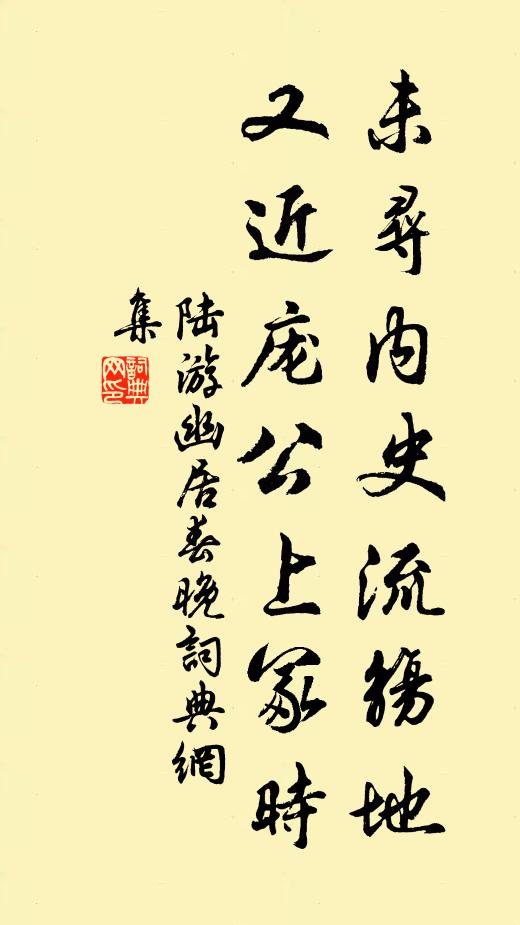 未尋内史流觴地
又近庞公上冢時
陆游幽居春晚詞典網
集
詞典網印